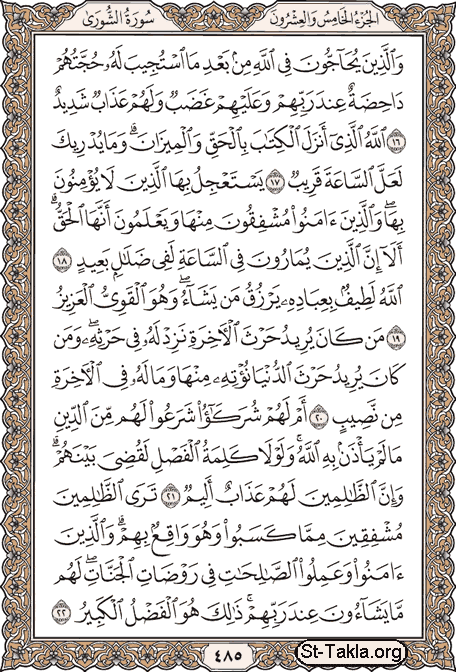 سُورَةُ الشُّورَىٰ
الجُزْءُ الخَامِسُ وَالعِشْرُونَ
وَٱلَّذِينَ يُحَآجُّونَ فِى ٱللَّهِ مِنۢ بَعْدِ مَا ٱسْتُجِيبَ لَهُۥ حُجَّتُهُمْ
دَاحِضَةٌ عِندَ رَبِّهِمْ وَعَلَيْهِمْ غَضَبٌ وَلَهُمْ عَذَابٌ شَدِيدٌ
١٦ ٱللَّهُ ٱلَّذِىٓ أَنزَلَ ٱلْكِتَٰبَ بِٱلْحَقِّ وَٱلْمِيزَانَ ۗ وَمَا يُدْرِيكَ
لَعَلَّ ٱلسَّاعَةَ قَرِيبٌ ١٧ يَسْتَعْجِلُ بِهَا ٱلَّذِينَ لَا يُؤْمِنُونَ
بِهَا ۖ وَٱلَّذِينَ ءَامَنُوا۟ مُشْفِقُونَ مِنْهَا وَيَعْلَمُونَ أَنَّهَا ٱلْحَقُّ ۗ
أَلَآ إِنَّ ٱلَّذِينَ يُمَارُونَ فِى ٱلسَّاعَةِ لَفِى ضَلَٰلٍۭ بَعِيدٍ ١٨
ٱللَّهُ لَطِيفٌۢ بِعِبَادِهِۦ يَرْزُقُ مَن يَشَآءُ ۖ وَهُوَ ٱلْقَوِىُّ ٱلْعَزِيزُ
١٩ مَن كَانَ يُرِيدُ حَرْثَ ٱلْءَاخِرَةِ نَزِدْ لَهُۥ فِى حَرْثِهِۦ ۖ وَمَن
كَانَ يُرِيدُ حَرْثَ ٱلدُّنْيَا نُؤْتِهِۦ مِنْهَا وَمَا لَهُۥ فِى ٱلْءَاخِرَةِ
مِن نَّصِيبٍ ٢٠ أَمْ لَهُمْ شُرَكَٰٓؤُا۟ شَرَعُوا۟ لَهُم مِّنَ ٱلدِّينِ
مَا لَمْ يَأْذَنۢ بِهِ ٱللَّهُ ۚ وَلَوْلَا كَلِمَةُ ٱلْفَصْلِ لَقُضِىَ بَيْنَهُمْ ۗ
وَإِنَّ ٱلظَّٰلِمِينَ لَهُمْ عَذَابٌ أَلِيمٌ ٢١ تَرَى ٱلظَّٰلِمِينَ
مُشْفِقِينَ مِمَّا كَسَبُوا۟ وَهُوَ وَاقِعٌۢ بِهِمْ ۗ وَٱلَّذِينَ
ءَامَنُوا۟ وَعَمِلُوا۟ ٱلصَّٰلِحَٰتِ فِى رَوْضَاتِ ٱلْجَنَّاتِ ۖ لَهُم
مَّا يَشَآءُونَ عِندَ رَبِّهِمْ ۚ ذَٰلِكَ هُوَ ٱلْفَضْلُ ٱلْكَبِيرُ ٢٢
٤٨٥
St-Takla.org